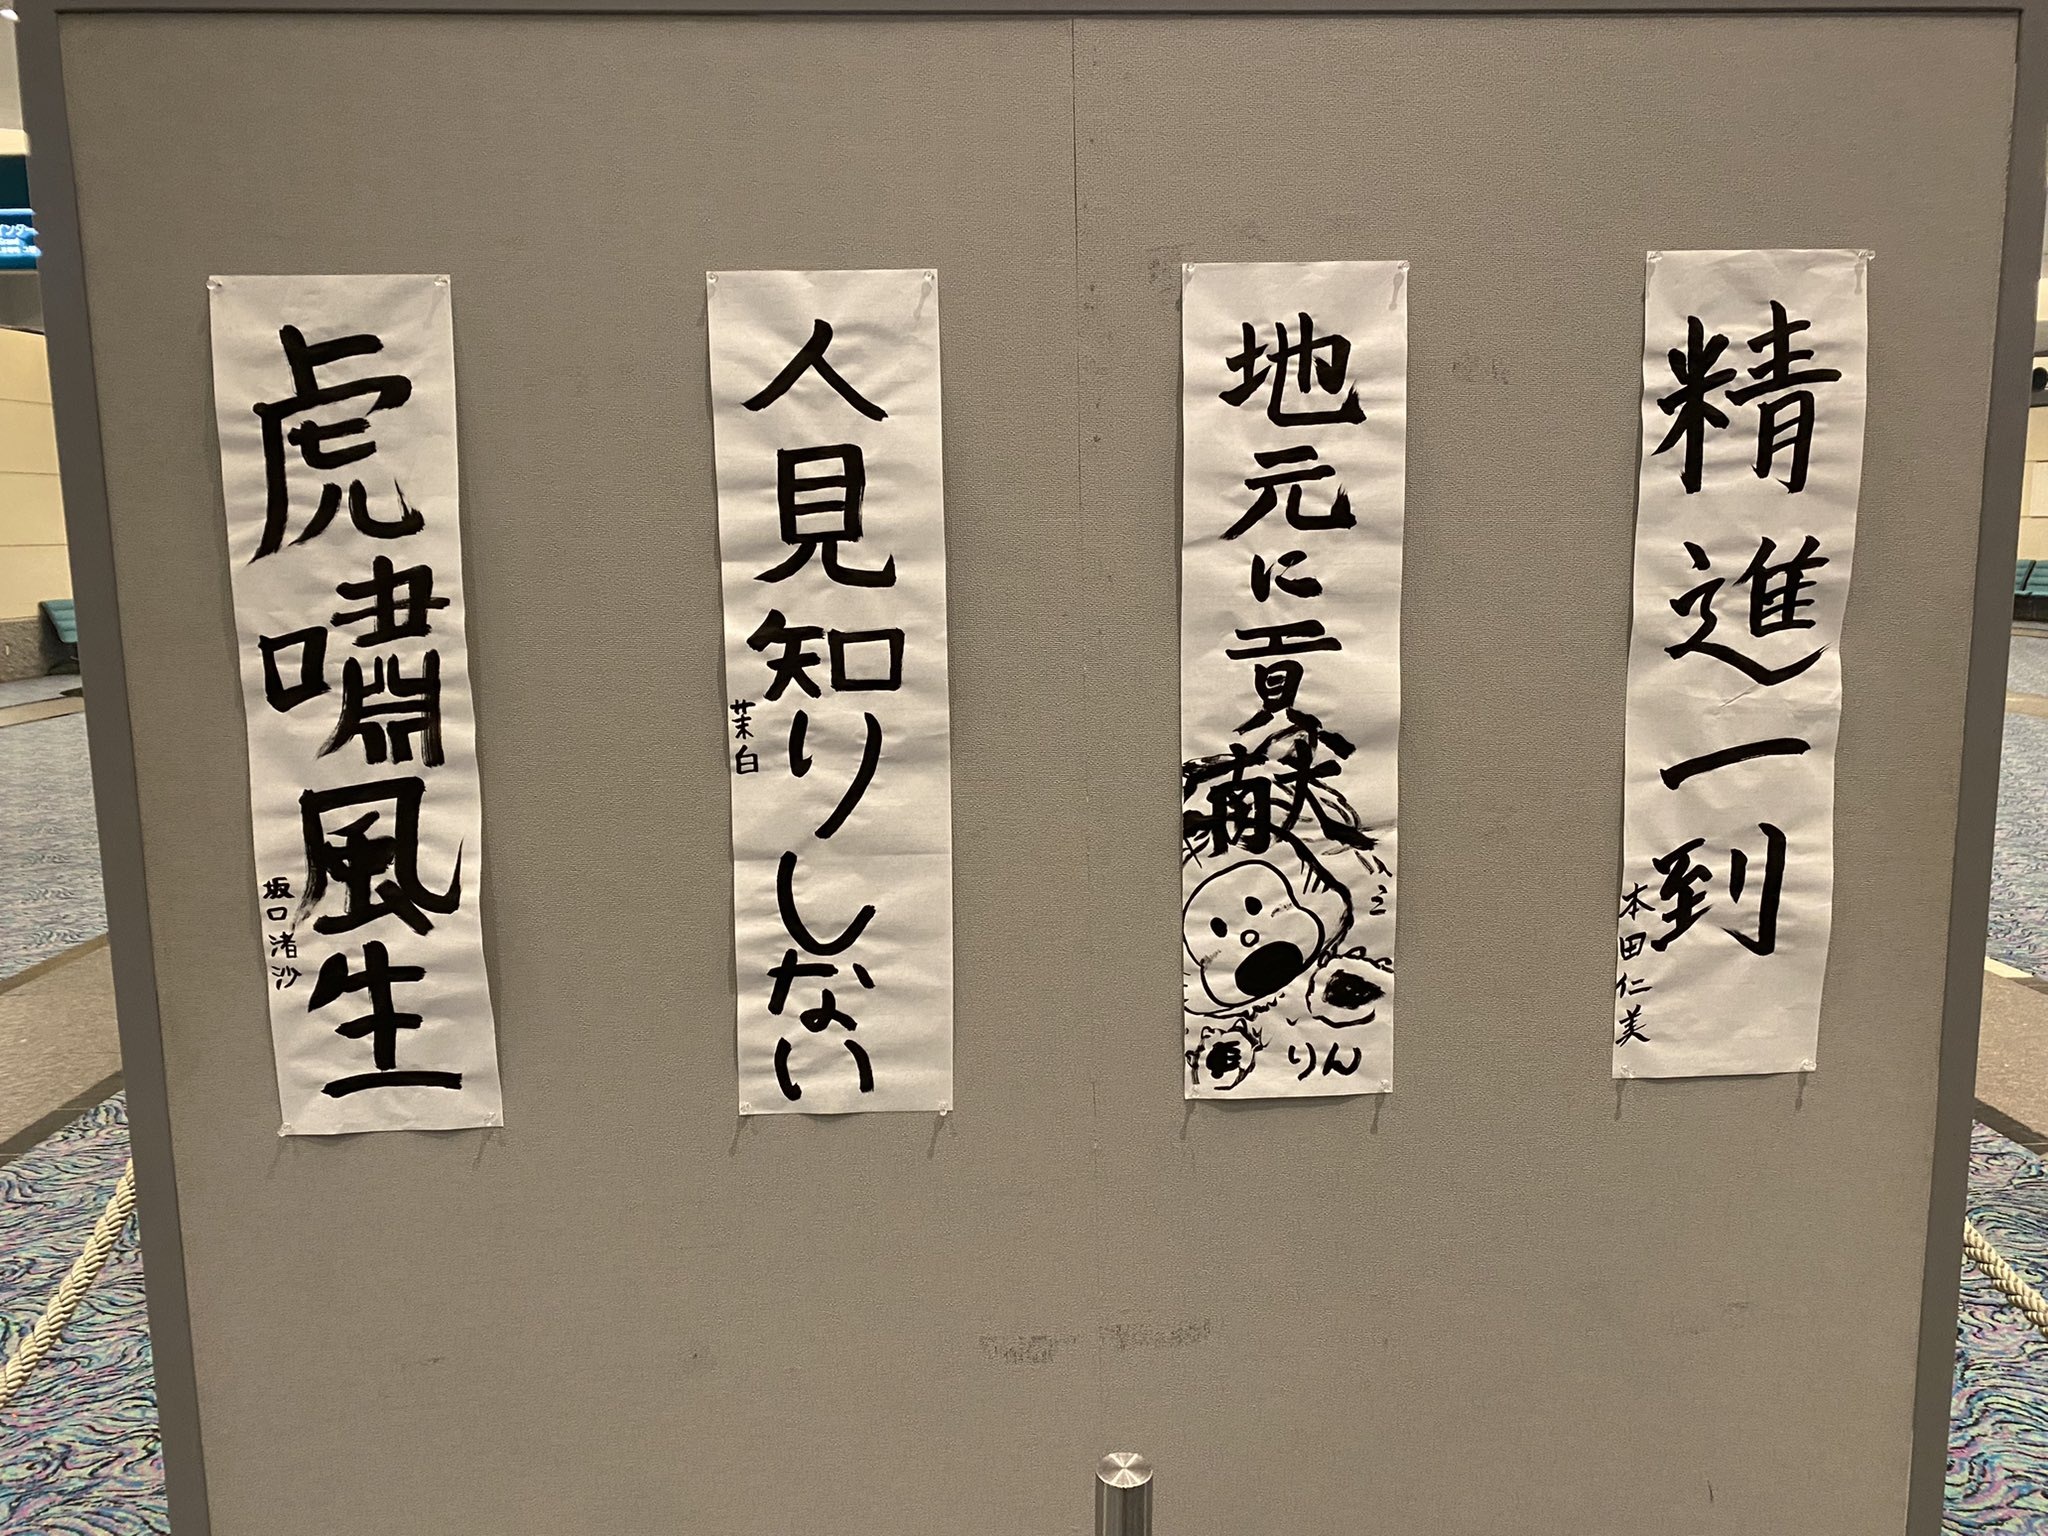 精進一到
本田仁美
地元に貢献
りん
人見知りしない
茉白
虎嘯風生
坂口渚沙